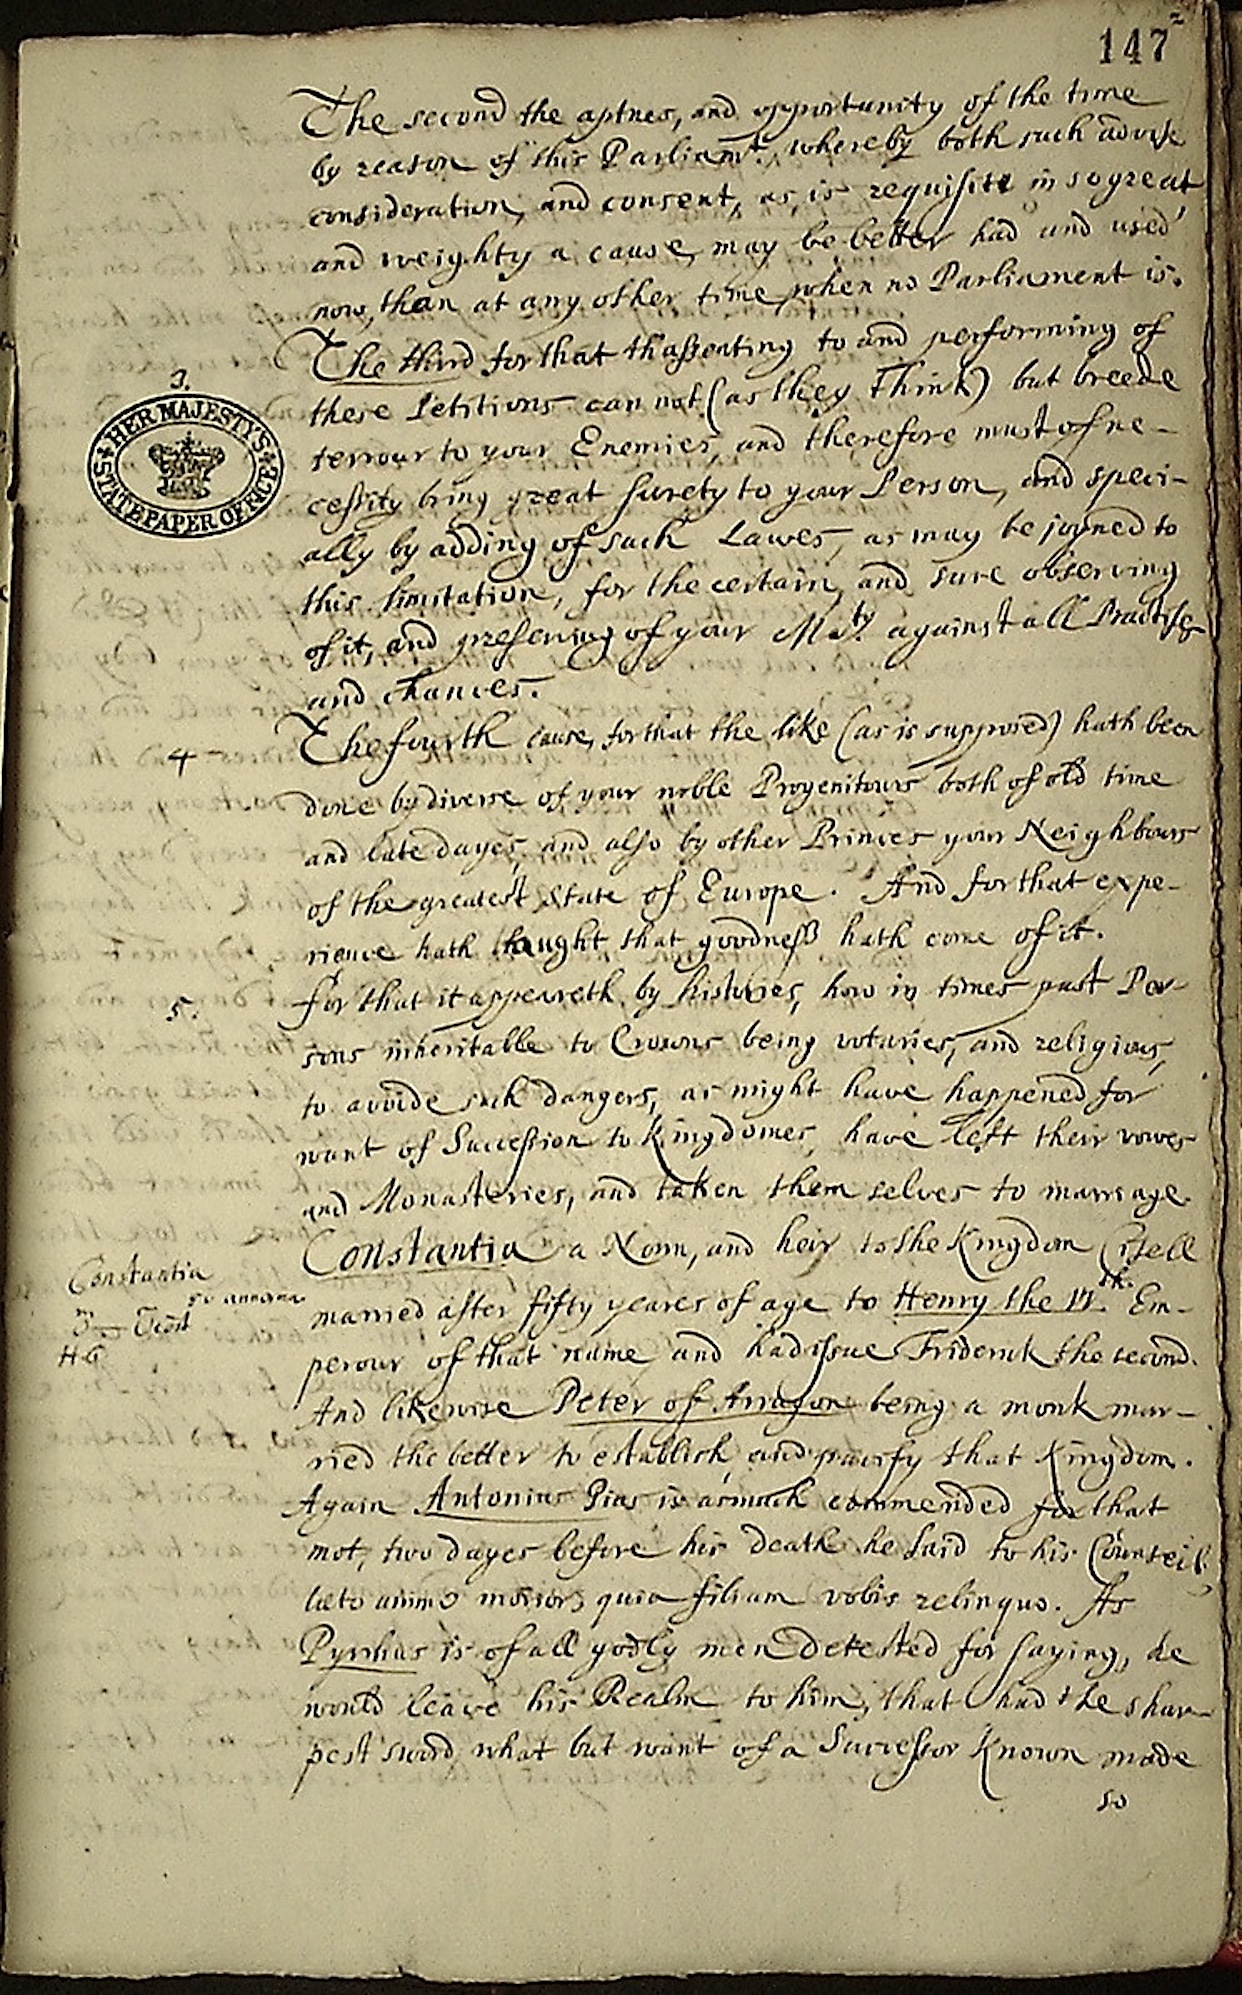 147
2
The second the aptnes, and opportunity of the time
by reason of this Parliamt. whereby both such advise
consideration, and consent, as is requisite in so great
and weighty a cause, may be better had and used
now, than at any other time, when no Parliament is.
3.
HER MAJESTY'S STATE PAPER OFFICE
The third for that thassenting to and performing of
these Petitions can not (as they think) but breede
terrour to your Enemies, and therefore must of ne-
cessity bring great surety to your Person, and speci-
ally by adding of such Lawes, as may be joyned to
this limitation, for the certain, and sure observing
of it, and preserving of your Maty. against all Practises
and chances.
4
The fourth cause, for that the like (as is supposed) hath been
done by diverse of your noble Progenitours both of old time
and late dayes, and also by other Princes your Neighbours
of the greatest State of Europe. And for that expe-
rience hath taught that goodness hath come of it.
5.
for that it appeareth by histories, how in times past Per-
sons inheritable to Crowns being votaries, and religious,
to avoide such dangers, as might have happened for
want of Succession to Kingdomes, have left their vowes
and Monasteries, and taken them selves to marriage
Constantia a Nonn, and heir to the Kingdom
Constantia
50 annorum
married after fifty yeares of age to Henry the VI.th Em-
H 6
perour of that name and had issue Friderick the second.
And likewise Peter of Arragon being a monk mar-
ried the better to establish and pacify that Kingdom.
Again Antonius Pius is asmuch commended for that
mot, two dayes before his death he said to his Counseil,
læto animo morior, quia filium vobis relinquo. As
Pyrrhus is of all godly men detested for saying, he
would leave his Realm to him, that had the shar-
pest sword, what but want of a Successor Known made
so